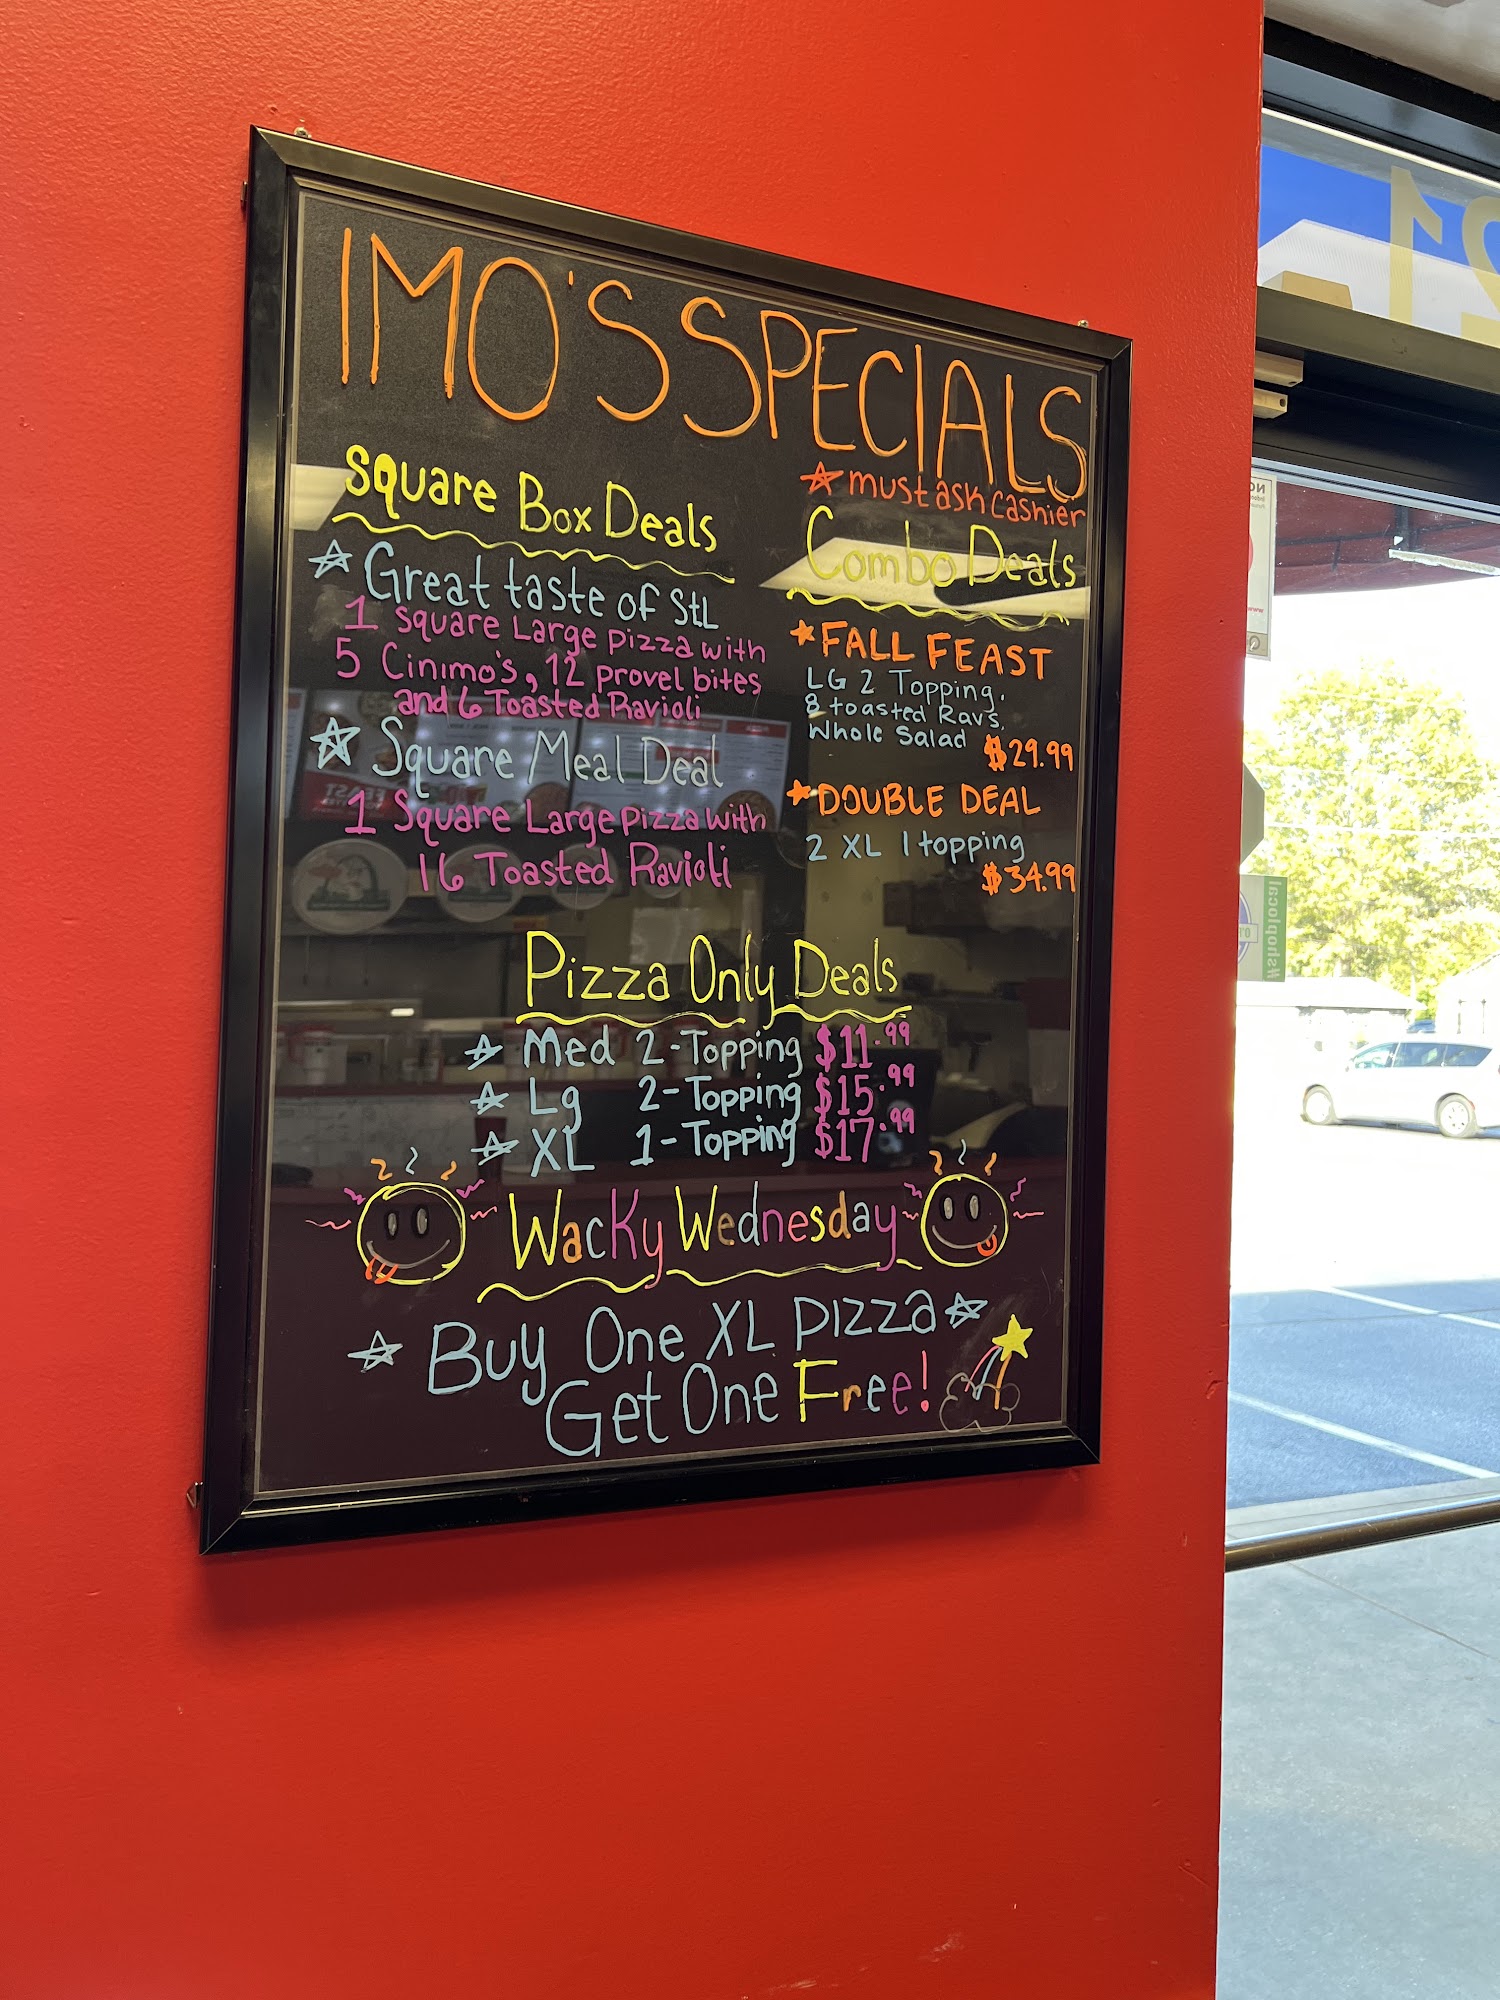 IMO'S SPECIALS
Square Box Deals
Great taste of StL
1 square Large pizza with
5 Cinimo's, 12 provel bites
and 6 Toasted Ravioli
Square Meal Deal
1 Square Large pizza with
16 Toasted Ravioli
must ask cashier
Combo Deals
FALL FEAST
LG 2 Topping,
8 toasted Rav's,
Whole Salad $29.99
DOUBLE DEAL
2 XL 1 topping
$34.99
Pizza Only Deals
Med 2-Topping $11.99
Lg 2-Topping $15.99
XL 1-Topping $17.99
Wacky Wednesday
Buy One XL pizza
Get One Free!
21
#shoplocal